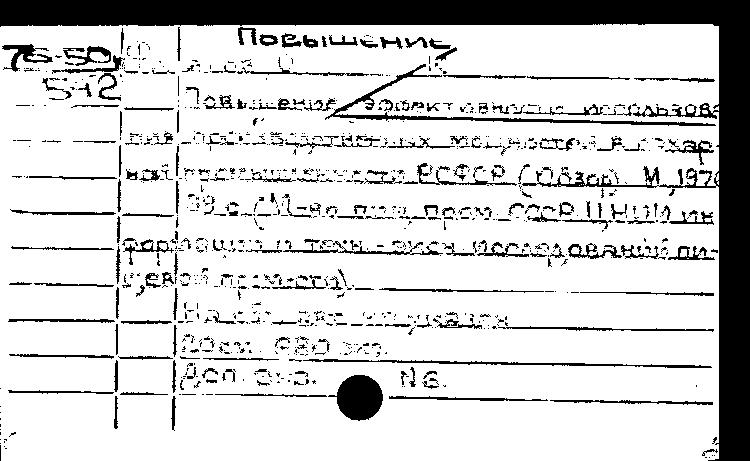 Повышение
76-50
542
Повышение эффективности использова
ния производственных мощностей в сахар-
ной промышленности РСФСР (Обзор). М, 1976
39 с (М-во пищ. пром. СССР. ЦНИИ ин
формации и техн.-экон. исследований пи-
щевой пром-сти).
На обл. авт. не указан
20см. 680 экз.
Деп. экз. N6.